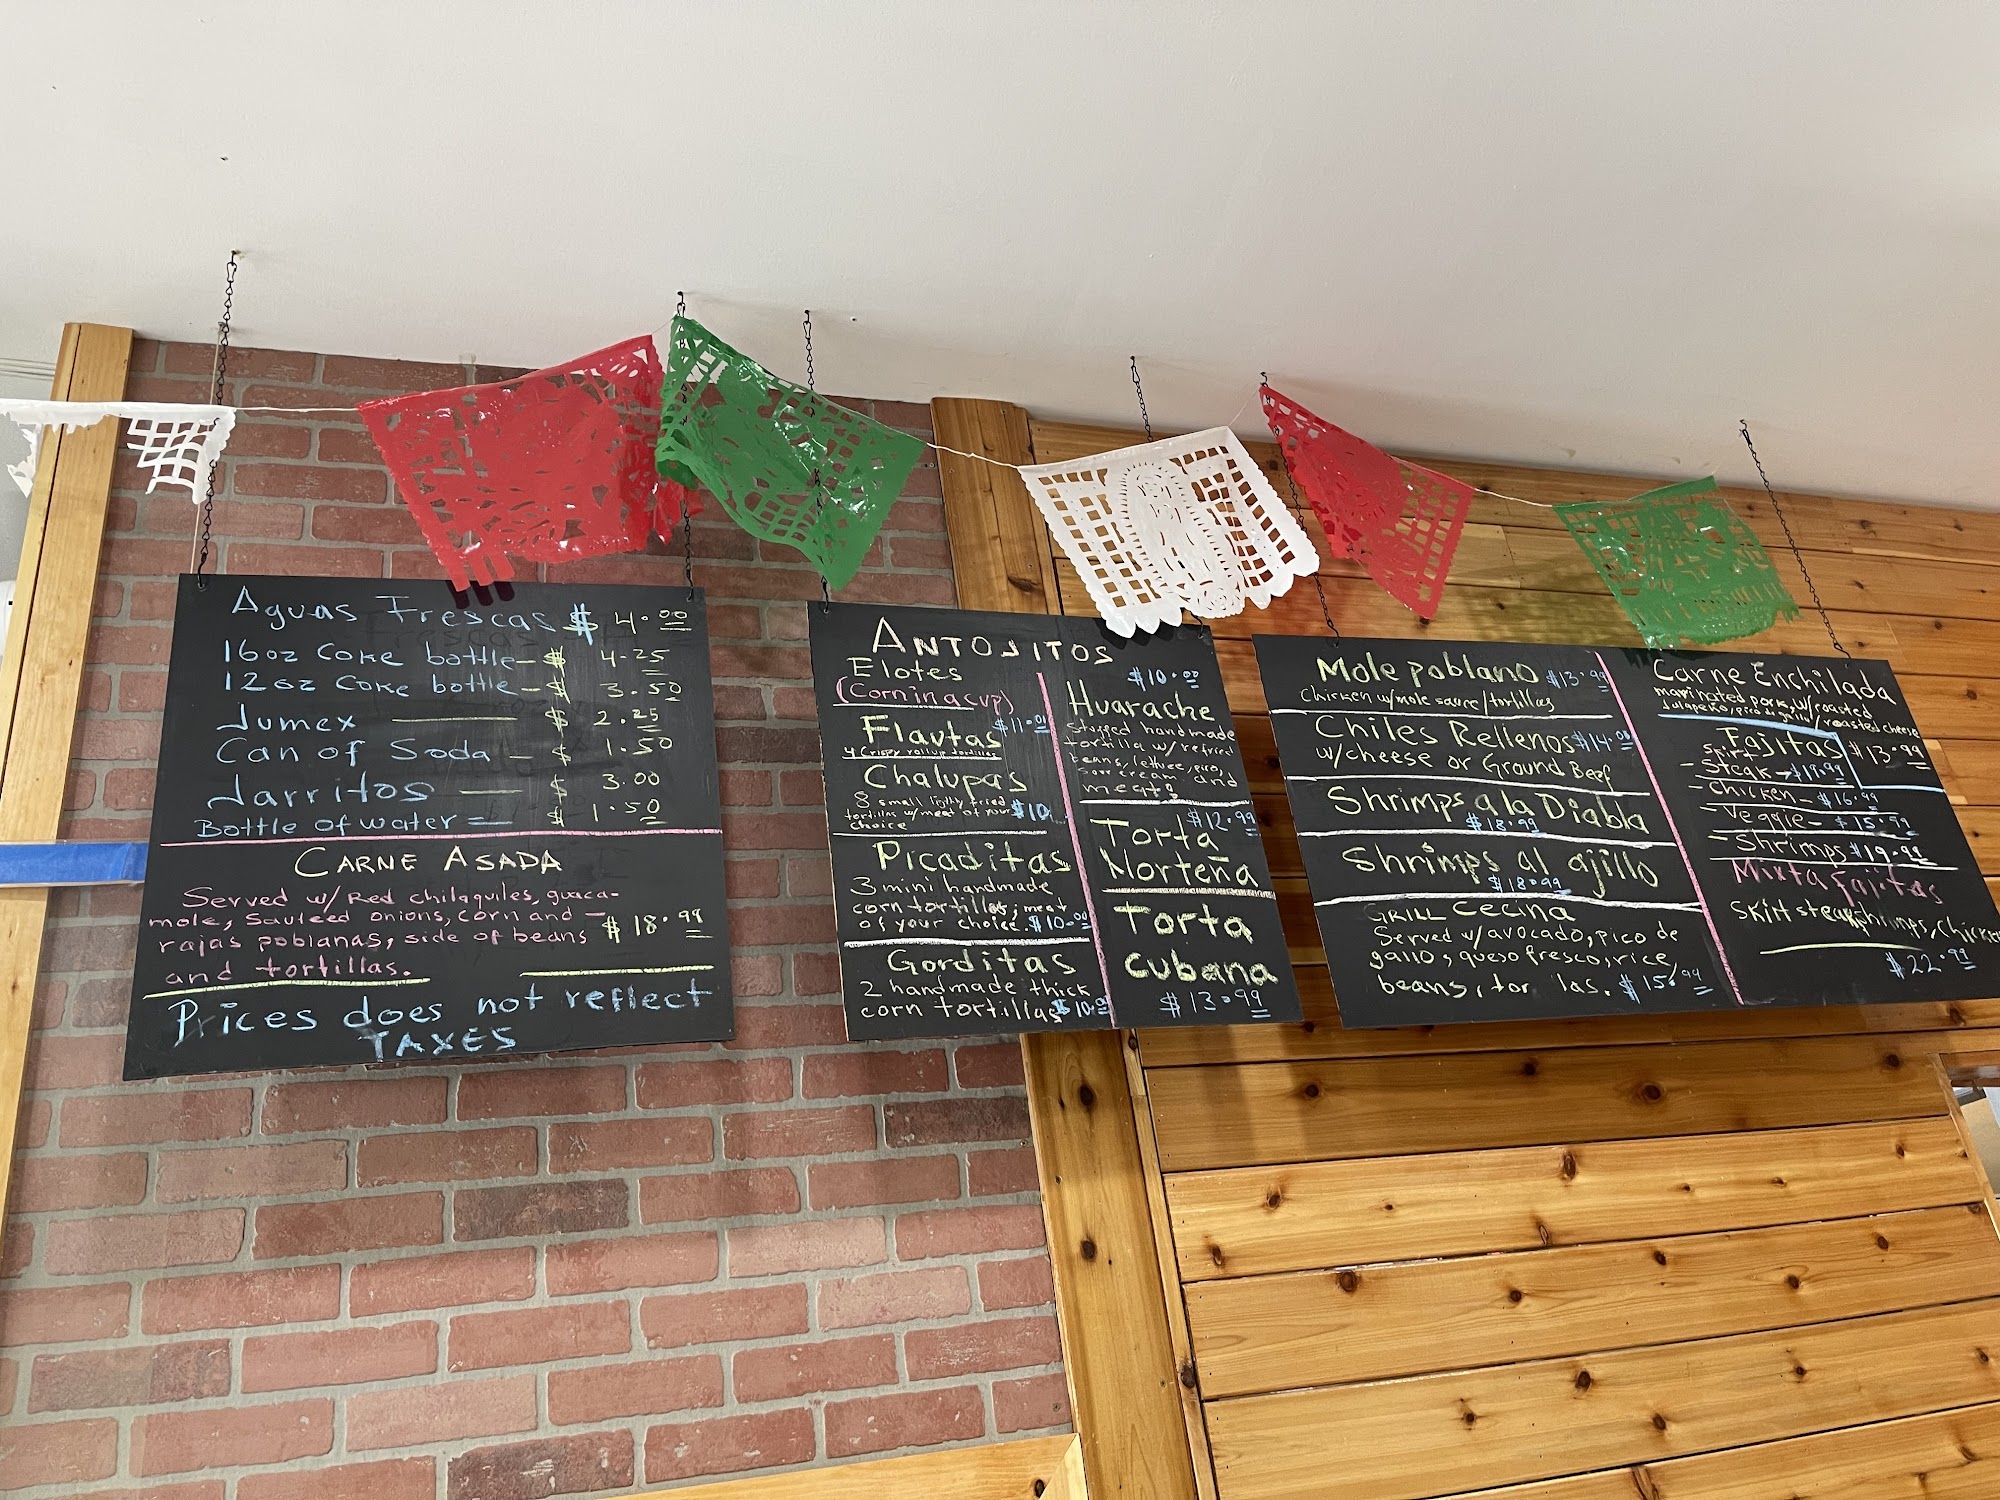 Aguas Frescas $ 4.00
16oz Coke bottle - $ 4.25
12oz Coke bottle - $ 3.50
Jumex $ 2.25
Can of Soda - $ 1.50
Jarritos $ 3.00
Bottle of water $ 1.50
CARNE ASADA
Served w/ Red chilaquiles, guaca-
mole, Sauteed onions, corn and -
rajas poblanas, side of beans $ 18.99
and tortillas.
Prices does not reflect
TAXES
ANTOJITOS
Elotes
(Corn in a cup)
Flautas $11.01
4 Crispy rollup tortillas
Chalupas
8 small lightly fried $10.
tortillas w/meat of your
choice
Picaditas
3 mini handmade
corn tortillas, meat
of your choice. $10.00
Gorditas
2 handmade thick
corn tortillas $10.00
$10.00
Huarache
Stuffed handmade
tortilla w/ refried
beans, lettuce, pico,
sour cream and
meat
$12.99
Torta
Norteña
Torta
cubana
$13.99
Mole poblano $13.99
Chicken w/mole sauce/tortillas
Chiles Rellenos $14.00
w/cheese or Ground Beef
Shrimps a la Diabla
$18.99
Shrimps al ajillo
$18.99
GRILL Cecina
Served w/avocado, pico de
gallo, queso fresco, rice,
beans, tor las. $15.99
Carne Enchilada
marinated pork, w/roasted
Jalapeño, pico de gallo/roasted cheese
$13.99
Fajitas
Skirt
- Steak - $19.99
- Chicken - $16.99
- Veggie - $15.99
- Shrimps $19.99
Mixta fajitas
Skirt steak, shrimps, chicken
$22.99